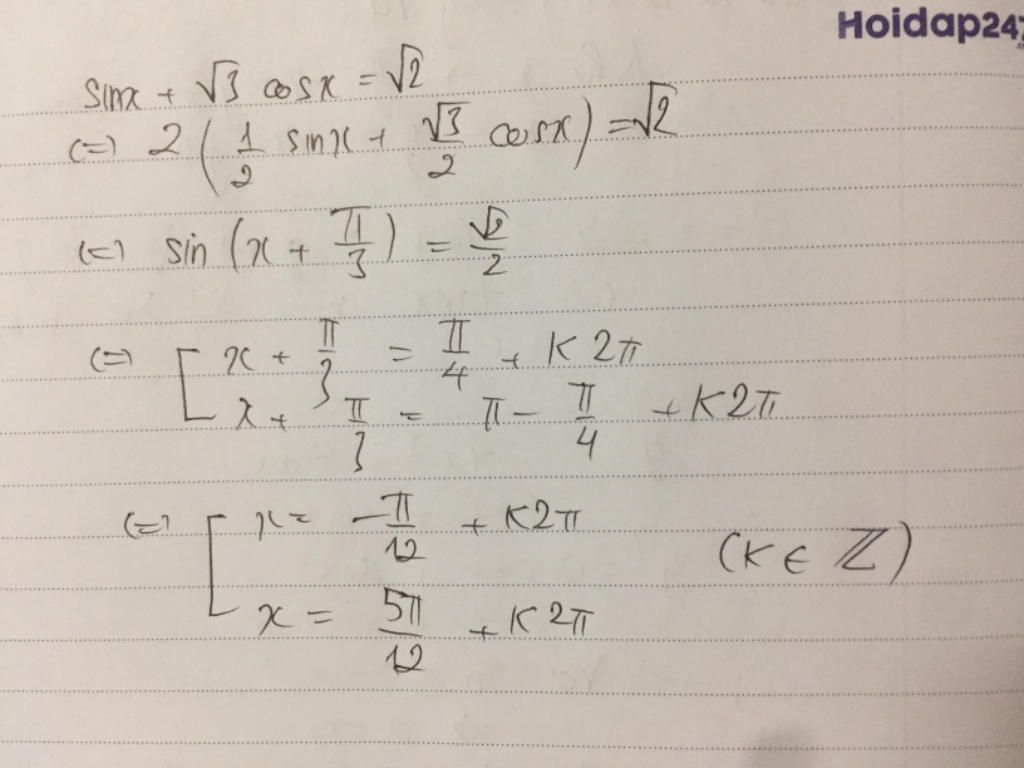 Hoidap247
sinx + √3 cosx = √2
(=) 2 ( 1/2 sinx + √3/2 cosx ) = √2
(=) sin (x + π/3) = √2/2
(=) [ x + π/3 = π/4 + K2π
x + π/3 = π - π/4 + K2π
(=) [ x = -π/12 + K2π
(K ∈ ℤ)
x = 5π/12 + K2π